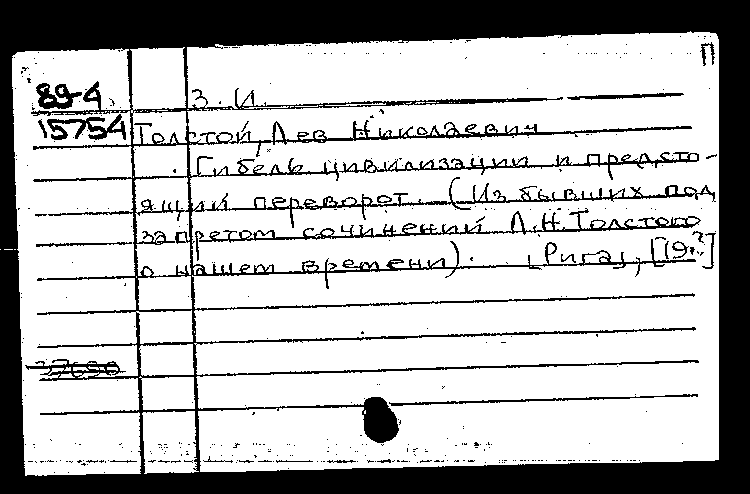 П
89-4 З. И.
15754 Толстой, Лев Николаевич
Гибель цивилизации и предсто-
ящий переворот (Из бывших под
запретом сочинений Л.Н.Толстого
о нашем времени). [Рига], [19..?]
37690